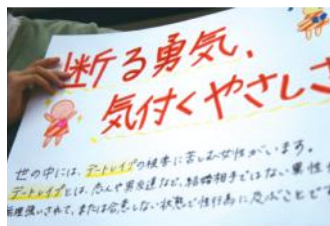 断る勇気、
気付くやさしさ
世の中には、デートレイプの被害に苦しむ女性がいます。
デートレイプとは、恋人や男友達など、結婚相手ではない異性
無理強いされて、または合意しない状態で性行為に及ぶことで